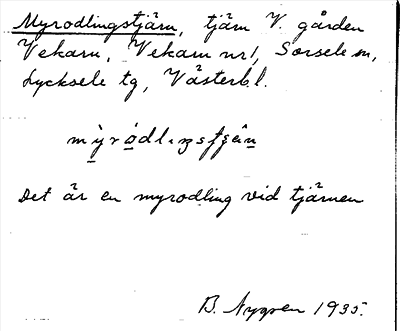 Myrodlingstjärn, tjärn V. gården
Vekarn, Vekarn nr 1, Sorsele sn,
Lycksele tg, Västerb.l.
Det är en myrodling vid tjärnen
B. Nygren 1935.